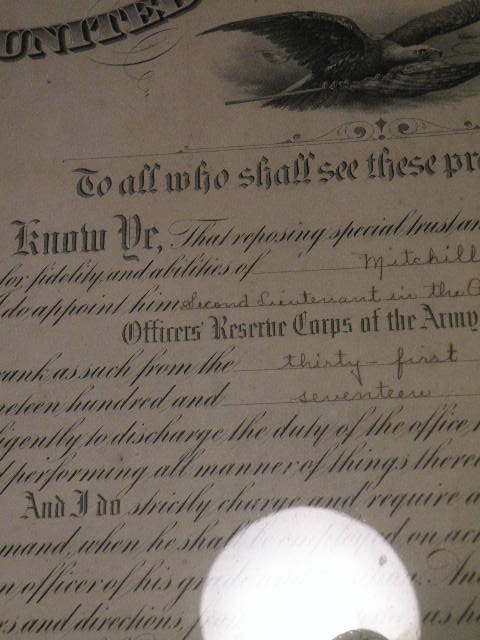 UNITED
To all who shall see these
Know Ye, That reposing special trust
for fidelity and abilities of Mitchill
I do appoint him Second Lieutenant in the
Officers' Reserve Corps of the Army
rank as such from the thirty-first
neteen hundred and seventeen
igently to discharge the duty of the office
performing all manner of things
And I do strictly charge and require
mand, when he shall be employed on
n officer of his
es and directions, as he